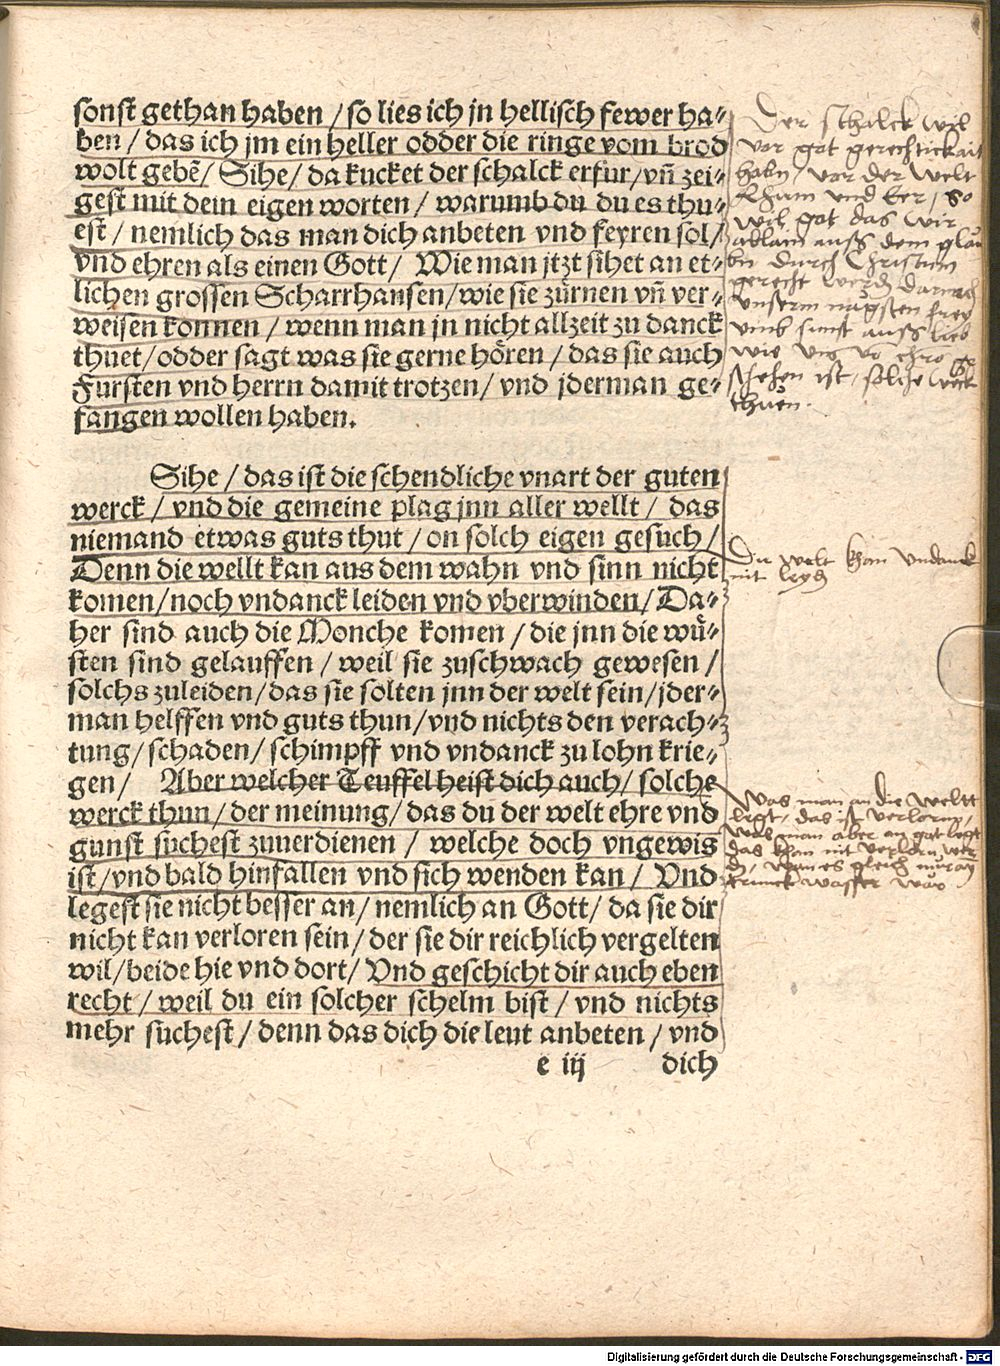 sonst gethan haben / so lies ich jn hellisch fewer ha⸗
ben / das ich jm ein heller odder die ringe vom brod
wolt gebẽ / Sihe / da kucket der schalck erfur / vñ zei⸗
gest mit dein eigen worten / warumb du du es thu⸗
est / nemlich das man dich anbeten vnd feyren sol /
vnd ehren als einen Gott / Wie man jtzt sihet an et⸗
lichen grossen Scharrhansen / wie sie zürnen vñ ver⸗
weisen konnen / wenn man jn nicht allzeit zu danck
thuet / odder sagt was sie gerne hören / das sie auch
Fursten vnd herrn damit trotzen / vnd jderman ge⸗
fangen wollen haben.
Sihe / das ist die schendliche vnart der guten
werck / vnd die gemeine plag jnn aller wellt / das
niemand etwas guts thut / on solch eigen gesuch /
Denn die wellt kan aus dem wahn vnd sinn nicht
komen / noch vndanck leiden vnd vberwinden / Da⸗
her sind auch die Monche komen / die jnn die wü⸗
sten sind gelauffen / weil sie zuschwach gewesen /
solchs zuleiden / das sie solten jnn der welt sein / jder⸗
man helffen vnd guts thun / vnd nichts den verach⸗
tung / schaden / schimpff vnd vndanck zu lohn krie⸗
gen / Aber welcher Teuffel heist dich auch / solche
werck thun / der meinung / das du der welt ehre vnd
gunst suchest zuuerdienen / welche doch vngewis
ist / vnd bald hinfallen vnd sich wenden kan / Vnd
legest sie nicht besser an / nemlich an Gott / da sie dir
nicht kan verloren sein / der sie dir reichlich vergelten
wil / beide hie vnd dort / Vnd geschicht dir auch eben
recht / weil du ein solcher schelm bist / vnd nichts
mehr suchest / denn das dich die leut anbeten / vnd
e iij dich
Der schalck wil
vor got gerechtickait
habn, vor der welt
Rhum und Eer, So
wil got das wir
allain auss dem glau
bn durch Christum
gerecht werdn darnach
unserm nagsten frey
umb sunst auss lieb
wie uns vo chro ge
schehen ist, solche werck
thuen.
Die welt khan Undanck
nit leydn
Was man an die weltt
legt, das ist verlorn,
was man aber an got legt
das khan nit verlorn wer
dn, wan es gleich nur ain
trunck wasser wär
Digitalisierung gefördert durch die Deutsche Forschungsgemeinschaft - DFG